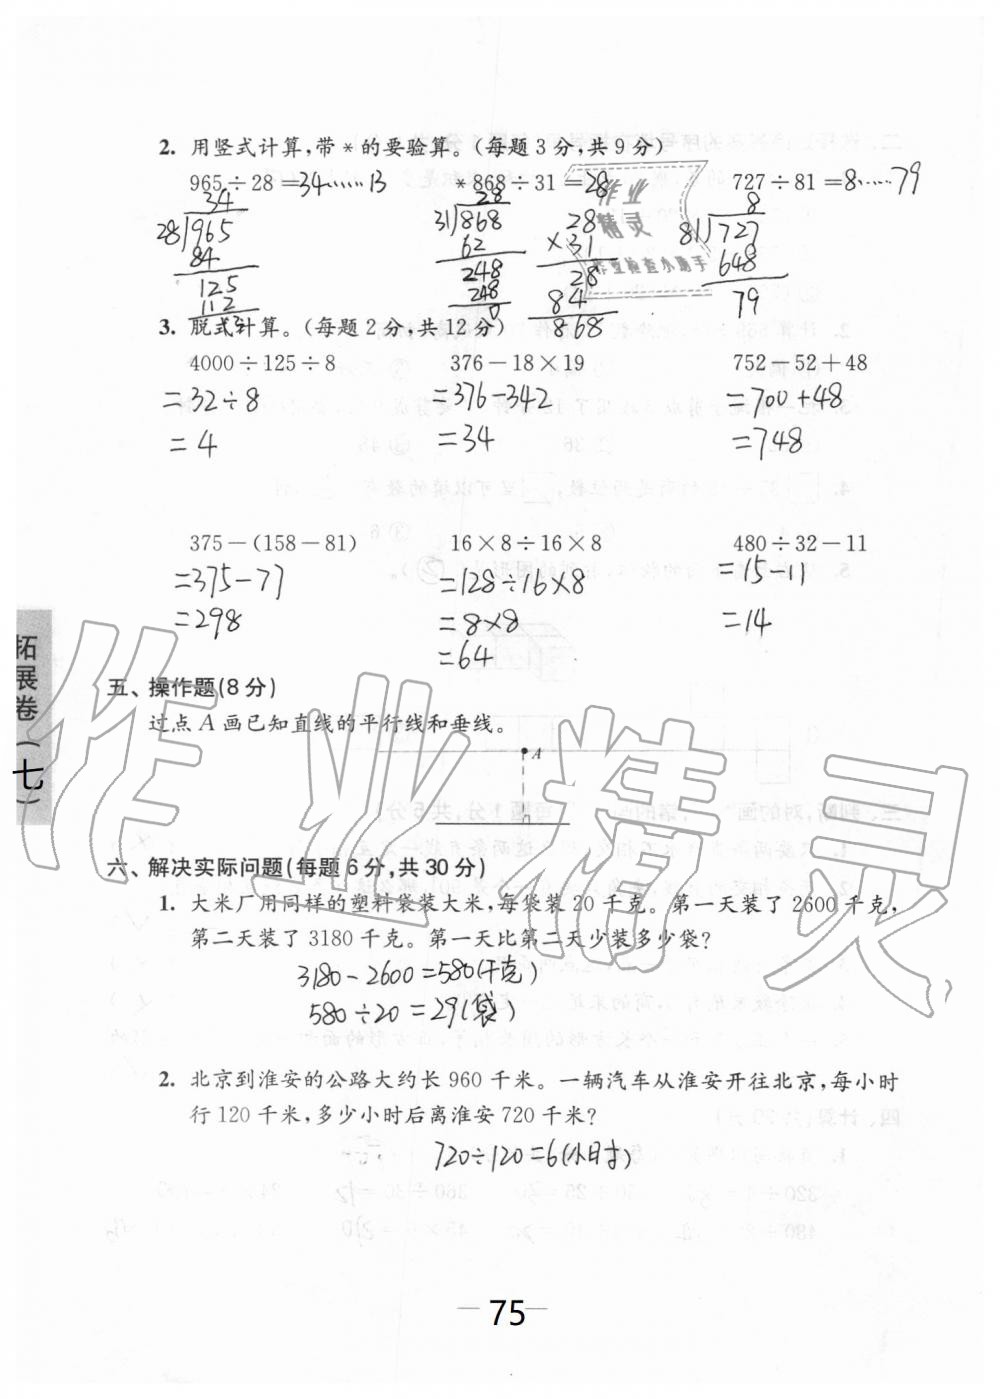 2. 用竖式计算,带*的要验算。(每题3分,共9分)
965÷28=34……13 *868÷31=28 727÷81=8……79
34 28 8
28)965 31)868 28 81)727
84 62 ×31 648
125 248 28 79
112 248 84
13 0 868
作业
精灵
作业检查小助手
3. 脱式计算。(每题2分,共12分)
4000÷125÷8 376-18×19 752-52+48
=32÷8 =376-342 =700+48
=4 =34 =748
375-(158-81) 16×8÷16×8 480÷32-11
=375-77 =128÷16×8 =15-11
=298 =8×8 =14
=64
五、操作题(8分)
过点A画已知直线的平行线和垂线。
A
六、解决实际问题(每题6分,共30分)
1. 大米厂用同样的塑料袋装大米,每袋装20千克。第一天装了2600千克,
第二天装了3180千克。第一天比第二天少装多少袋?
3180-2600=580(千克)
580÷20=29(袋)
2. 北京到淮安的公路大约长960千米。一辆汽车从淮安开往北京,每小时
行120千米,多少小时后离淮安720千米?
720÷120=6(小时)
拓展卷(七)
作业精灵
— 75 —